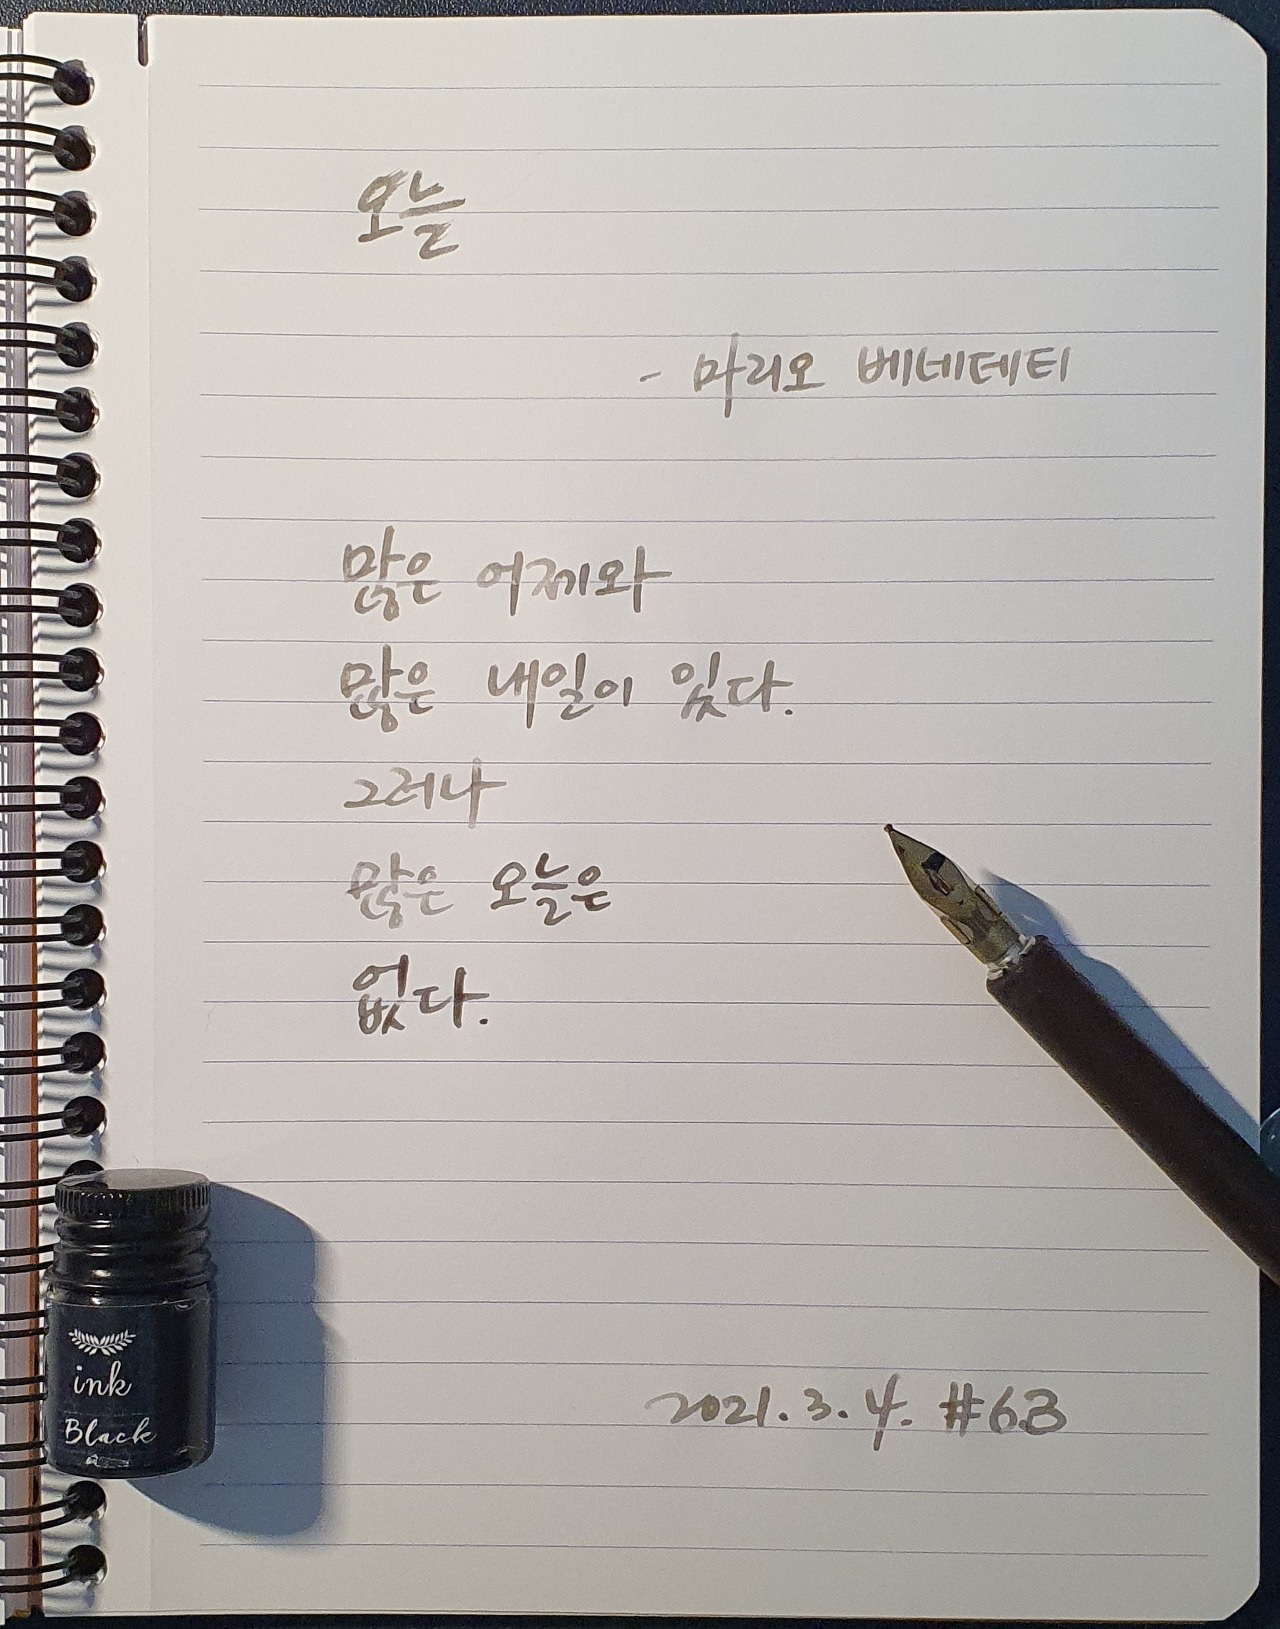 오늘
- 마리오 베네데티
많은 어제와
많은 내일이 있다.
그러나
많은 오늘은
없다.
ink
Black
2021. 3. 4. #63